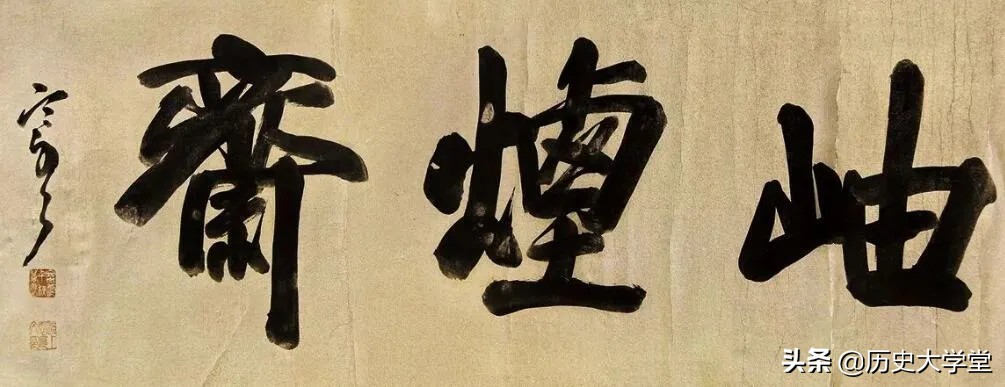 岫煙齋
头条 @历史大学堂